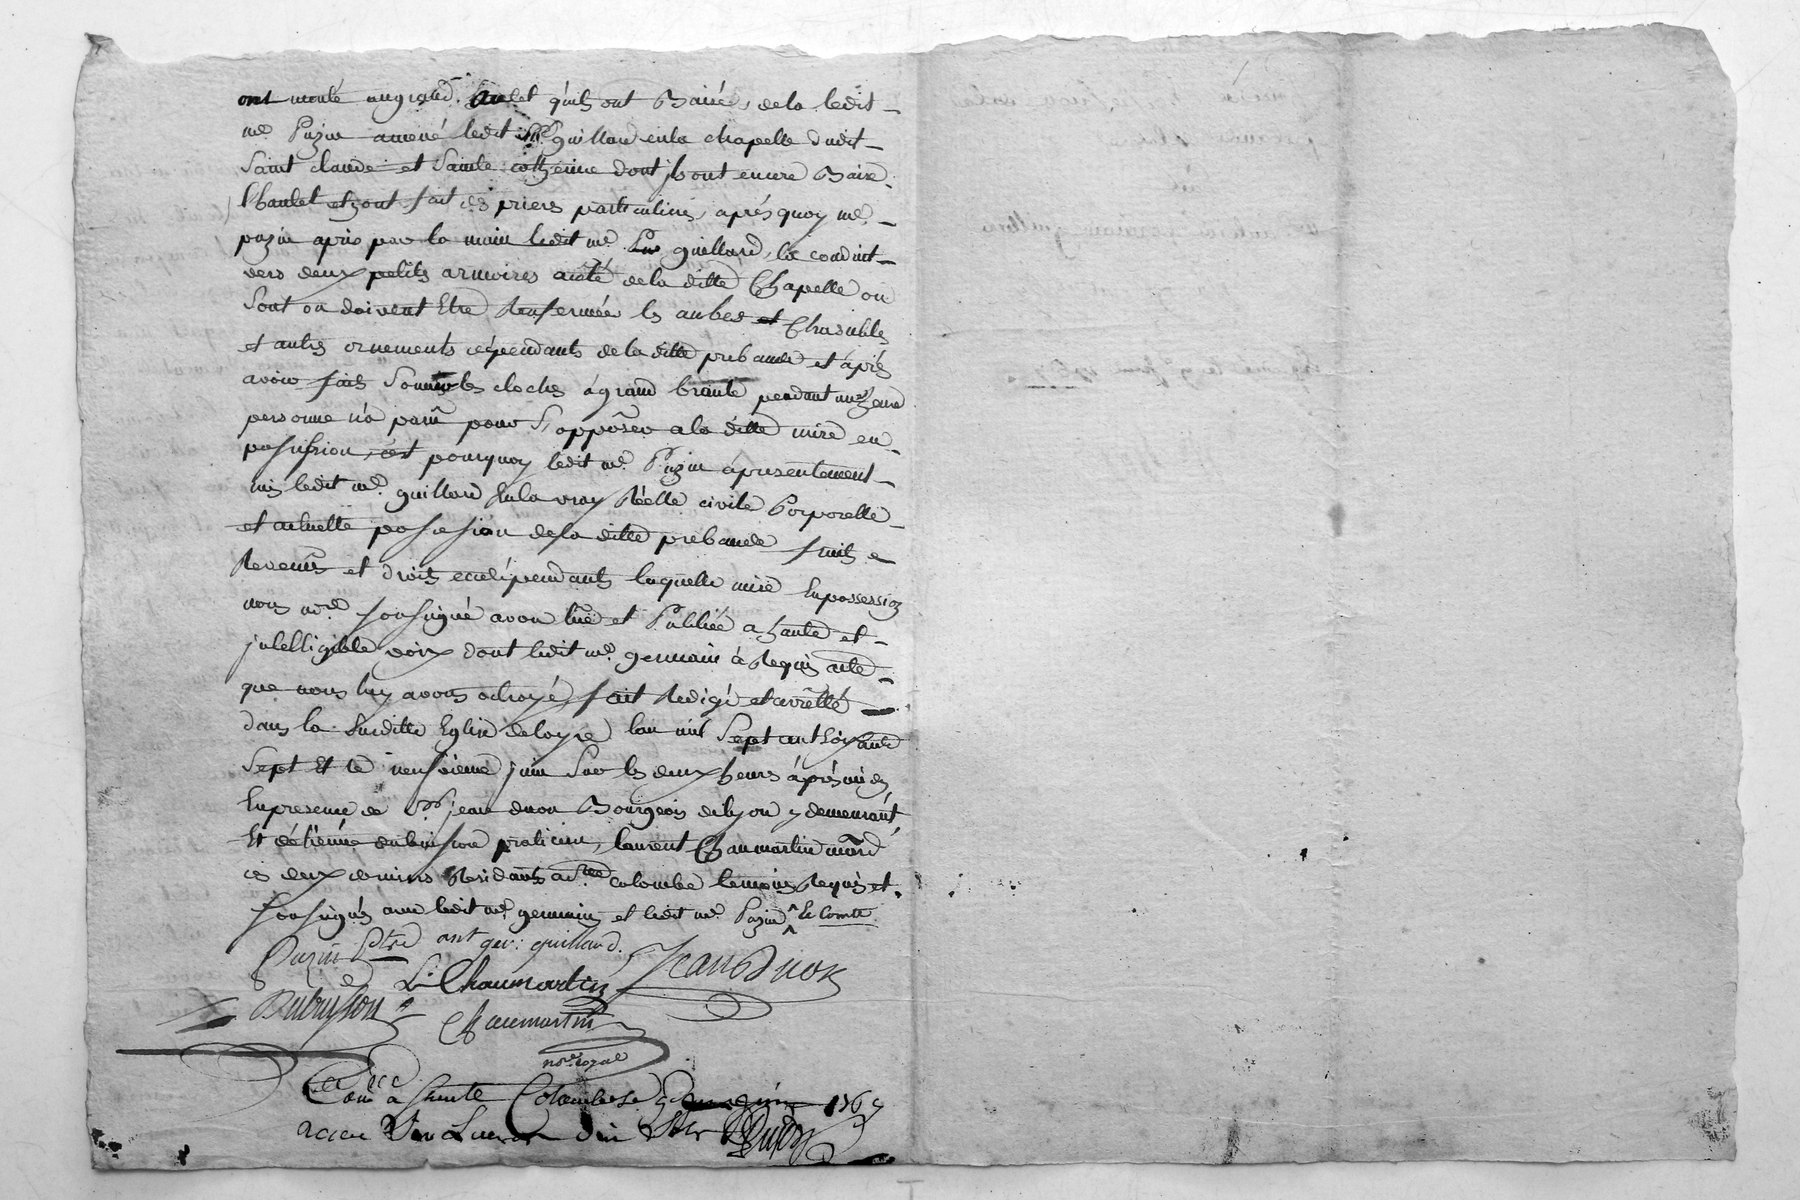 ont monté au grand autel qu'ils ont Baisé, dela ledit
me Puzin amené ledit Sr guillard en la chapelle dudit
Saint claude et Sainte catherine dont ils ont encore Baisé
l'hautel et y ont fait des prieres particulieres, aprés quoy me
puzin apris par la main ledit me guillard, la conduit
vers deux petits armoires acoté de la ditte Chapelle ou
Sont ou doivent Etre Renfermées les aubes et Chasubles
et autres ornements dependants de la ditte prebande et aprés
avoir fait Sonner les cloches a grand branle pendant une heure
personne n'a paru pour S'y opposer a la ditte mise en
possession, c'est pourquoy ledit me Puzin a presentement
mis ledit me guillard En la vray Réelle civile Corporelle
et actuelle possession de la ditte prebande fruits
Revenus et droits en dependants laquelle mise En possession
nous nore soussigné avons lue et Publiée a haute et
intelligible voix dont ledit me germain a Requis acte
que nous luy avons octroyé fait Redigé et arretté
dans la Susditte Eglise de loyre lan mil Sept cent Soixante
Sept Et le neufvieme juin Sur les deux heures aprés midy
En presence de Sr jean duon Bourgeois de lyon y demeurant
Et d'étienne dubuisson praticien, laurent Chaumartin mard
ces deux derniers Residants a Ste colombe temoins Requis et
soussignés avec ledit me germain et ledit me Puzin ^ Le Comte
Puzin Ptre ant ger: guillard.
Lt Chaumartin Jean Duon
Dubuisson Chaumartin
nore royal
Conlé a Sainte Colombe le 9 juin 1767